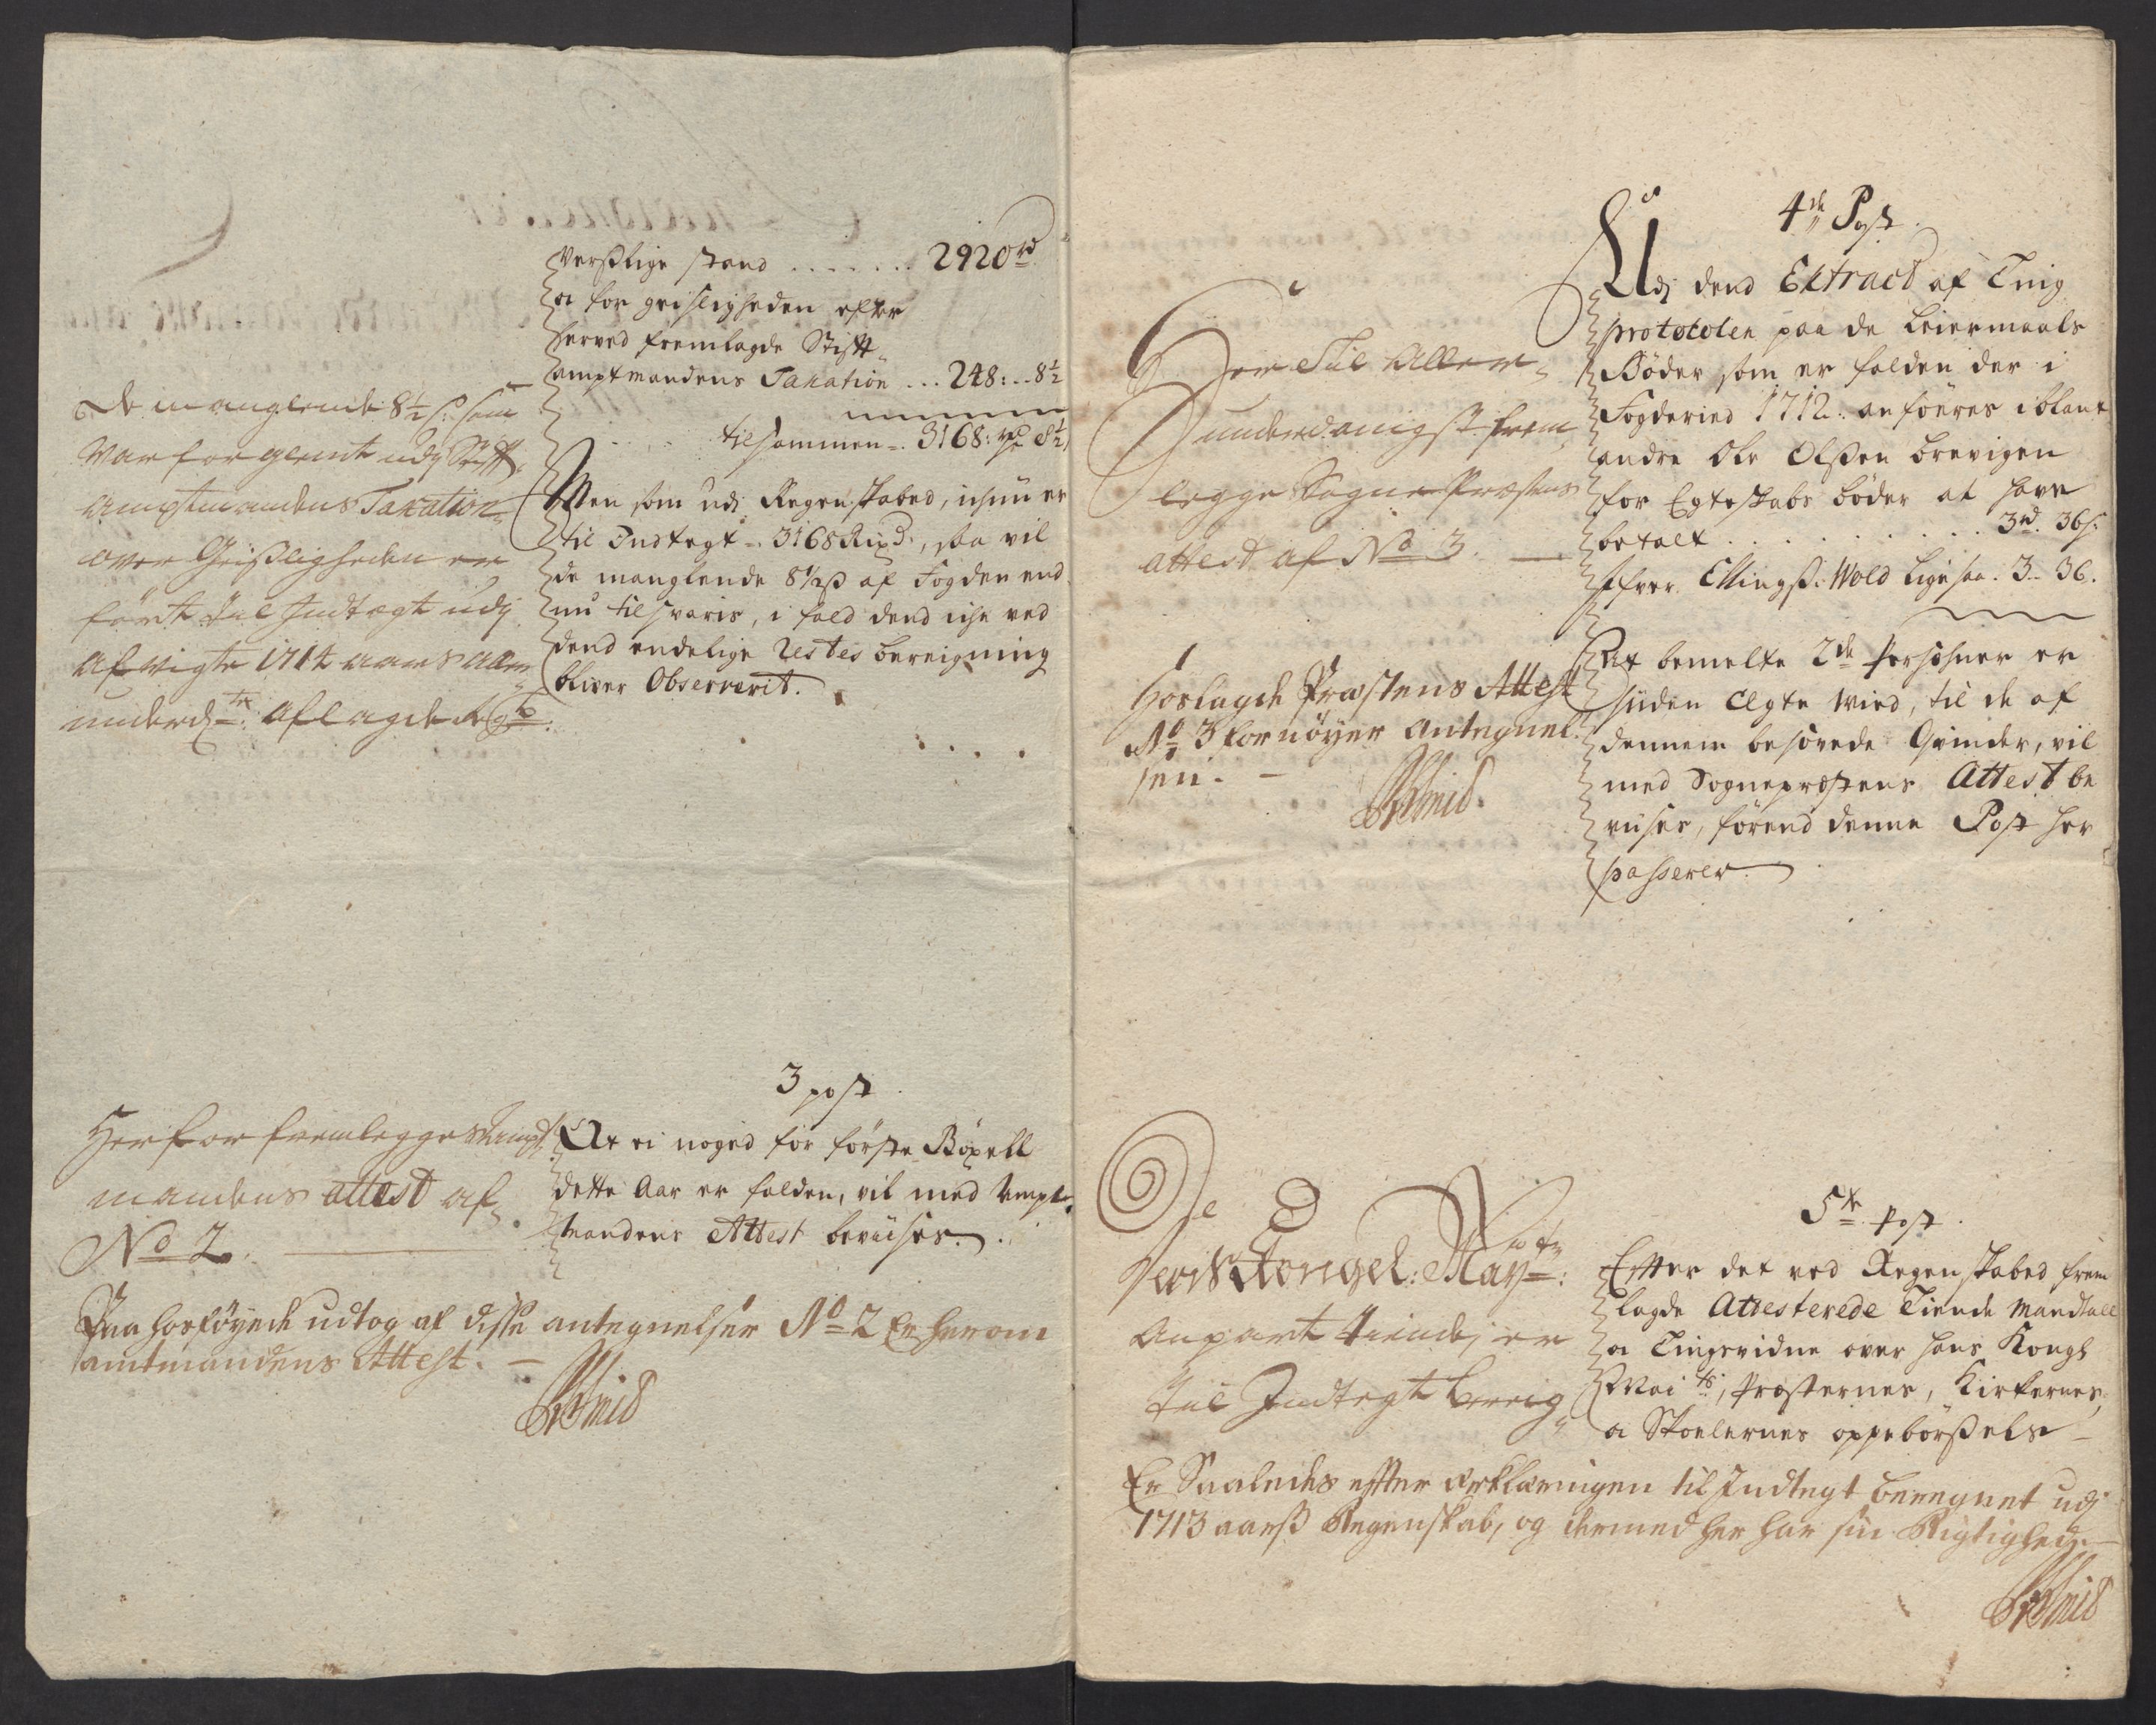 verßlige stand ....... 2920 rd
a for geisligheden efter
herved fremlagde Stift-
amptmandens Taxation ... 248: .. 8½
tilsammen -. 3168: rd 8½
Men som udj Regenskabed, ichun er
til Indtegt -. 3168 Rixd:, saa vil
de manglende 8½ ß af Fogden end
nu tilsvaris, i fald dend iche ved
dend endelige Restes bereigning
bliver Observerit.
De manglende 8½ s: som
var for glemt udj Stift-
amptmandens Taxation
over Geistligheden er
ført til Indtægt udj
afvigte 1714 aars aller
underd: aflagde
3 post
At ei noged for første Bøxell
dette Aar er falden, vil med Ampt-
mandens Attest beviises.
Herfor fremlegges Ampt-
mandens attest af
No 2.
Paa hosføyede udtog af disse antegnelser No 2 Er herom
amtmandens Attest. -
4de Post.
Udj dend Extract af Ting
protocolen paa de Leiermaals
Bøder som er falden der i
Fogderied 1712. anføeres iblant
andre Ole Olßen Brevigen
for Egteskabs bøder at have
betalt . . . . . . . . . 3 rd. 36 s:
Ifver Ellingß: Wold Ligesaa. 3.. 36.
At bemelte 2de Persohner er
siiden Egte vied, til de af
dennem besovede Qvinder, vil
med Sognepræstens Attest be
viises, førend denne Post her
passerer.
Her til Aller-
underdanigst frem
legge Sogne Præstens
attest af No 3.
Hoslagde Præstens Attest
No 3 fornøyer Antegnel-
sen. -
5te post.
Efter det ved Regenskabed frem
lagde Attesterede Tiende Mandtall
a Tingsvidne over hans Kongl
Mai ts:, Præsternes, Kirkernes,
a Skolernes oppebørßels -
Kongel: May:
anpart tiende, er
til Indtegt bereig
Er Saaledes efter Erklæringen til Indtegt beregnet udj
1713 aarß Regenskab, og dermed her har sin Rigtighed. -